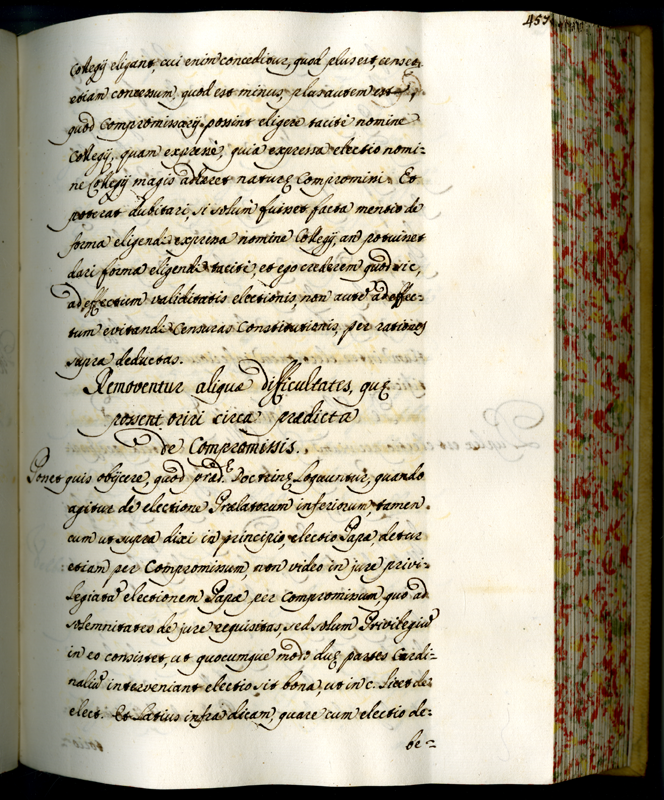 457
Collegij eligant, cui enim conceditur, quod plus est, censet.
etiam concessum, quod est minus, plus autem est,
quod Compromissarij possint eligere tacitè nomine
Collegij, quam expressè, quia expressa electio nomi=
ne Collegij magis adhæret naturę Compromissi. Et
poterat dubitari, si solùm fuisset facta mentio de
forma eligendi expressa nomine Collegij, an potuisset
dari forma eligendi tacitè, et ego crederem quod sic,
ad effectum validitatis electionis, non autē ad effec=
tum evitandi Censuras Constitutionis, per rationes
supra deductas.
Removentur aliquæ difficultates, quę
possent oriri circa prædicta
de Compromissis.
Posset quis obijcere, quod præd.ę Doctrinę loquuntur, quando
agitur de electione Prælatorum inferiorum, tamen
cum ut supra dixi in principio, electio Papæ, detur
etiam per Compromissum, non video in jure privi=
legiatā electionem Papæ per Compromissum, quo ad
solemnitates de jure requisitas, sed solum Privilegiū
in eo consistet, ut quocumque modo duę partes Cardi=
naliū interveniant electio sit bona, ut in c. licet de
elect. Et latius infra dicam, quare cum electio de=
be=